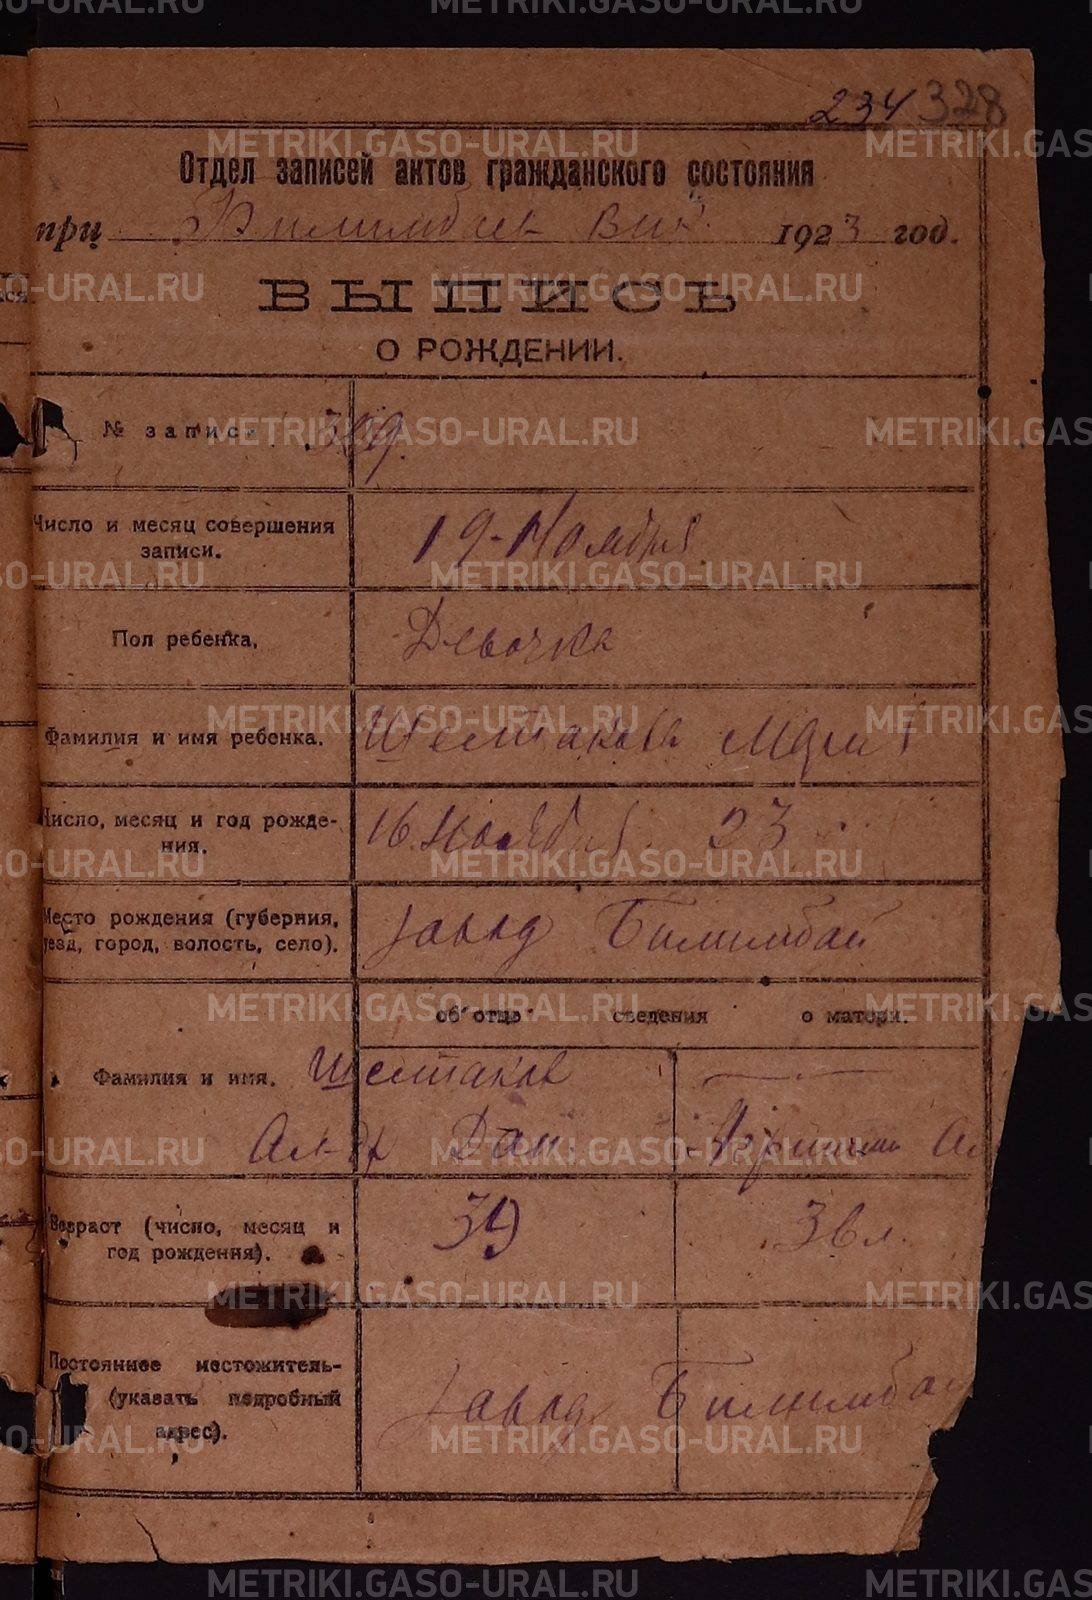 234 328
Отдел записей актов гражданского состояния
при Билимбаев вик. 1923 год.
ВЫПИСЬ
О РОЖДЕНИИ.
№ запис 309.
Число и месяц совершения
записи.
19-Ноября
Пол ребенка,
Девочка
Фамилия и имя ребенка.
Шестакова Мария
Число, месяц и год рожде-
ния.
16 Ноября 23
Место рождения (губерния,
уезд, город, волость, село).
завод Билимбай
об'отце сведения о матери.
Фамилия и имя.
Шестаков
Ал-др Дан.
Возраст (число, месяц и
год рождения).
39
36 л.
Постоянное местожитель-
(указать подробный
адрес).
завод Билимбай
METRIKI.GASO-URAL.RU